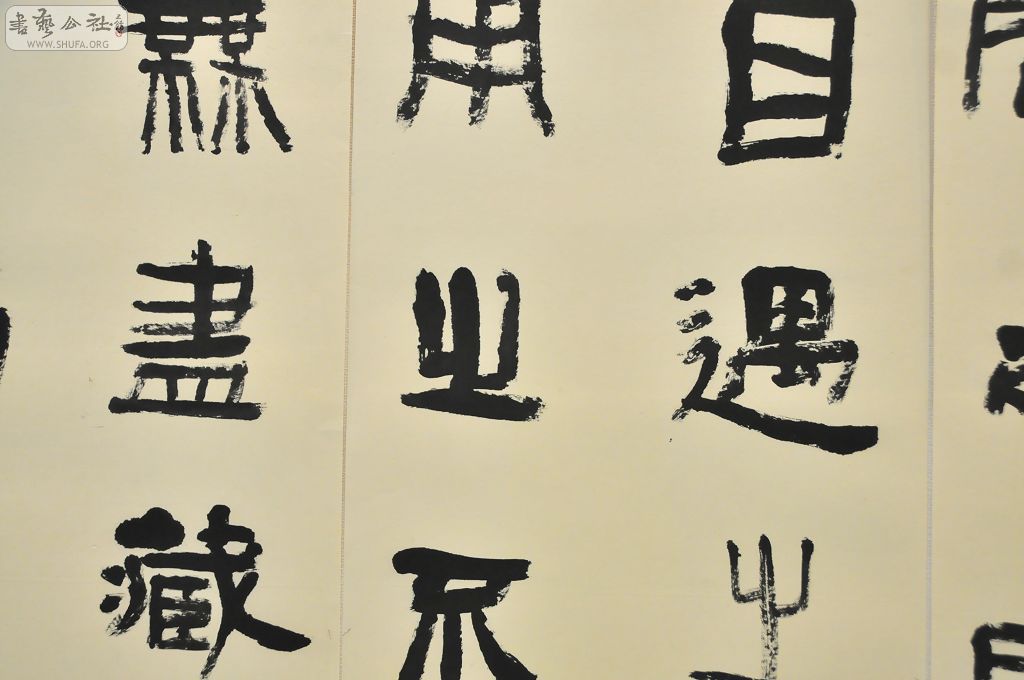 目遇之
用之不
無盡藏
書藝公社
WWW.SHUFA.ORG